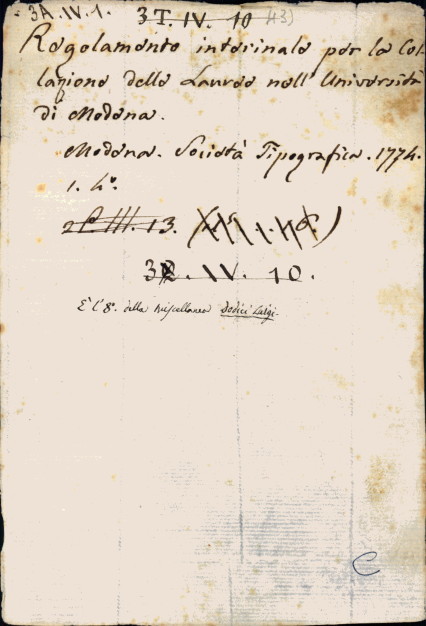 3A.IV.1. 3T.IV.10 43)
Regolamento interinale per la Col-
lazione delle Lauree nell' Università
di Modena.
Modena. Società Tipografica. 1774.
1. 4°.
13.
IV. 10.
È l' 8°. della Miscellanea Dodici Luigi.
C